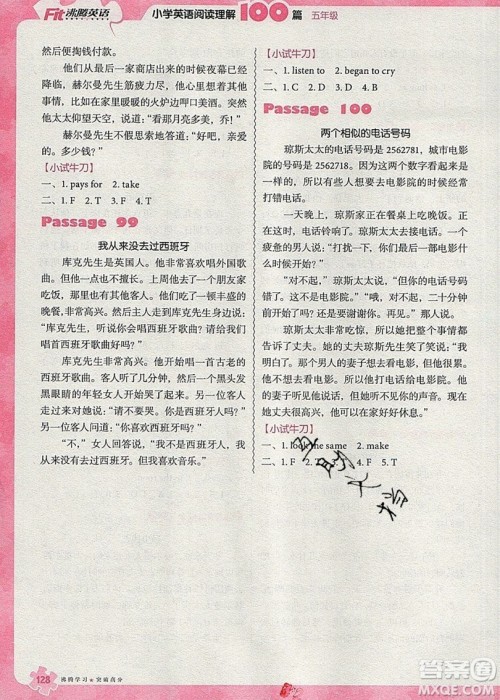 Fit 沸腾英语
小学英语阅读理解100篇 五年级
然后便掏钱付款。
他们动身向一家商店出来的时候夜幕已经
降临了，赫尔曼先生疲劳尽力，想着其他
事情，比如在家里暖暖的火炉边喝口美酒。他
太太仰望天空，喊道：“看那月亮多美，乔！”
赫尔曼先生不假思索地答道：“好吧，亲爱
的。多少钱？”
【小试牛刀】
一、1. pays for 2. take
二、1. F 2. F 3. T 4. F 5. T
Passage 99
我从来没去过西班牙
库克先生是英国人。他非常喜欢唱外国歌
曲。但他一点也不擅长。上周他去了一个朋友
家吃饭，那里还有其他客人。他们吃了一顿丰盛的
晚餐，然后女主人走到库克先生身边说：“库
克先生，听说你会唱西班牙歌曲？请给我们
唱首西班牙歌曲好吗？”
库克先生非常高兴。他开始唱一首古老的
西班牙歌曲。客人听了几分钟，然后一个黑头发
黑眼睛的女士开始哭了起来。另一个女客人
走过来对她说：“请不要哭。你是西班牙人
吗？”
“不，”女人回答说，“我不是西班牙人。
我从来没去过西班牙。但我喜欢音乐。”
【小试牛刀】
一、1. listen to 2. began to cry
二、1. C 2. D 3. C 4. D
Passage 100
两个相似的电话号码
琼斯太太的电话号码是2562781，城市电影
院的号码是2562718。因为这两个数字看起来很
相似，所以人们想要打电话到电影院的时候经常
打错电话。
一天晚上，琼斯先生正在餐桌上吃晚饭。
电话铃响了。琼斯太太去接电话。电话里一个
疲惫的男人说：“打扰一下，你们最后一场电影什
么时候开始？”
“对不起，”琼斯太太说，“你的电话号码错
了。这不是电影院。”“哦，对不起，二十分钟
前就开始了，还是要谢谢你。再见。”那人说。
琼斯太太非常吃惊，所以她把整个事情都
告诉了丈夫。她的丈夫琼斯先生笑了笑说：“我
明白了。打电话的男人的妻子想去看电影，但
他想待在家里不想去看电影，所以他打了电话。他
的妻子听见他说的话，但没有听见你说的。现在
她丈夫很高兴，因为他可以在家好好休息。”
【小试牛刀】
一、1. look the same 2. make
二、1. F 2. T 3. F 4. F 5. T
128
沸腾学习 突破高分
答案圈
MXQE.COM